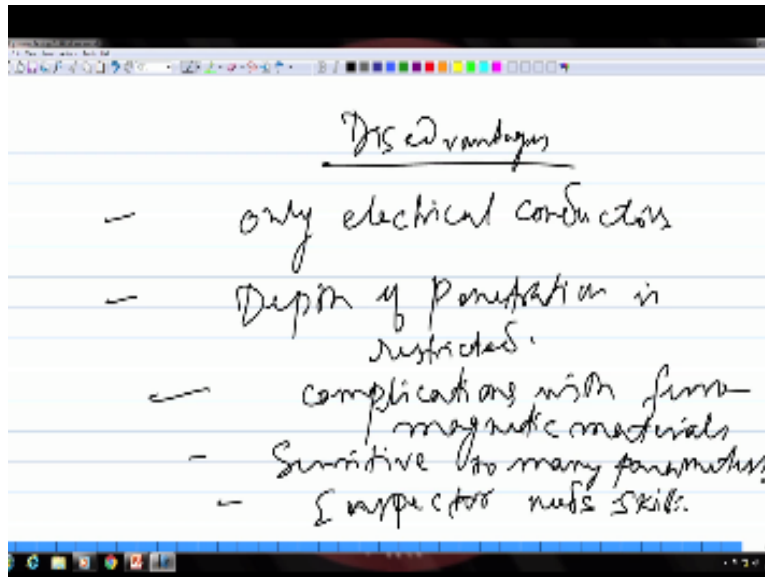 Disadvantages
- only electrical conductors
- Depth of Penetration is
restricted.
- complications with ferro-
magnetic materials
- Sensitive to many parameters
- Inspector needs skill.